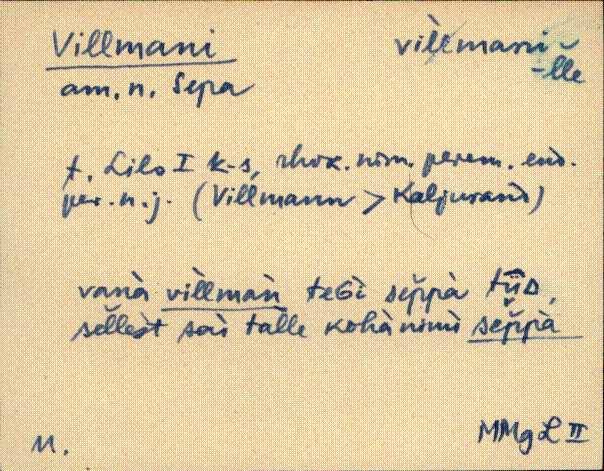 Villmani vìl̆lmani
-l̆le
am. n. Sepa
t. Lilo I k-s, rhvk. nim. perem. end.
per. n. j. (Villmann > Kaljurand)
vanà vìllmàn teɢì sep̆pà tīɪ̯D,
sel̆lest sai talle kohànimì sep̆pà
M. MMg L II